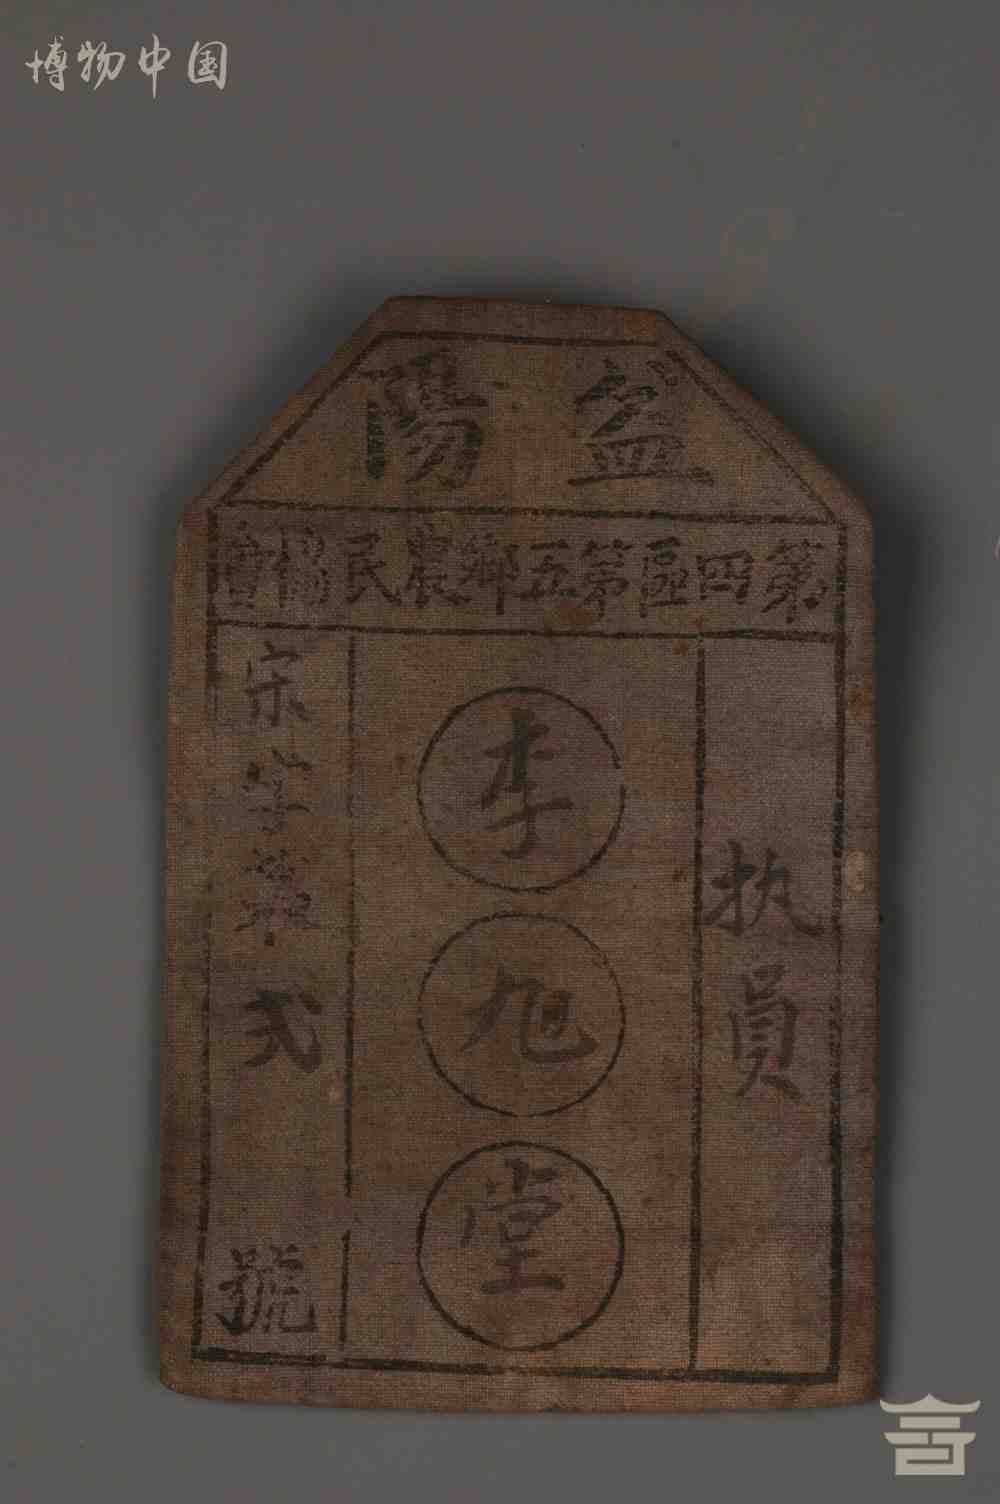 博物中国
益陽
第四區第五鄉農民協會
执員
李旭堂
宋字第弍號